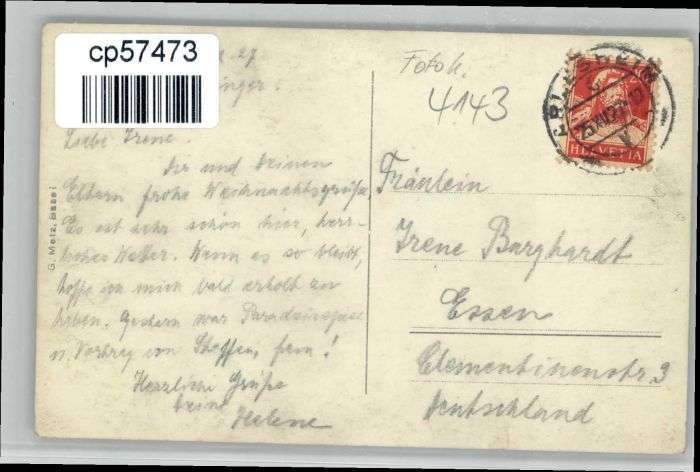 cp57473
27
Liebe Irene.
Dir und Deinen
Eltern frohe Weihnachtsgrüße,
Es ist sehr schön hier, herr-
liches Wetter. Wenn es so bleibt,
hoffe ich mich bald erholt zu
haben. Gestern war
u. Vortrag von Steffen, fein!
Herzliche Grüße
Deine
Helene
G. Metz, Basel
Fotok.
4143
HELVETIA
Fräulein
Irene Barghardt
Essen
Clementinenstr. 3
Deutschland